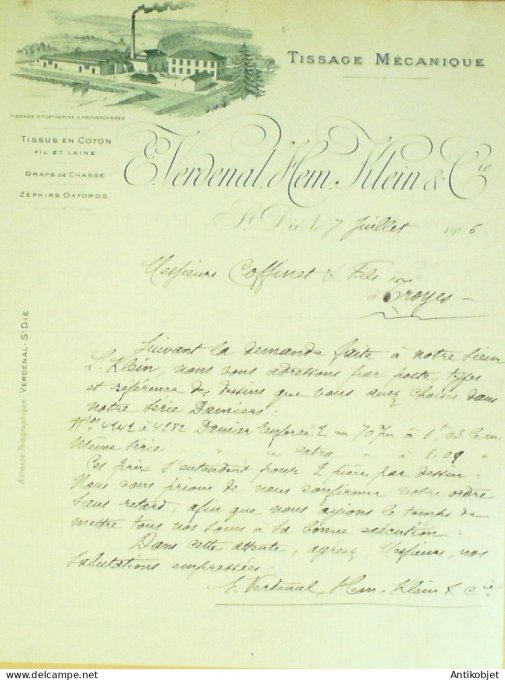 TISSAGE MÉCANIQUE
TISSAGE STE CATHERINE À PROVENCHÈRES
TISSUS EN COTON
FIL ET LAINE
DRAPS DE CHASSE
ZÉPHIRS OXFORDS
E. Verdenal, Hem, Klein & Cie
St Dié, le 7 Juillet 1906
Messieurs Coffinet & Fils
à Troyes
Adresse Télégraphique VERDENAL ST DIÉ
Suivant la demande faite à notre Sieur
L. Klein, nous vous adressons par poste, types
et référence des dessins que vous avez choisis dans
notre Série Damiers.
Damier Enforcé 2 en 70 à 1f 03 le m.
Même série " " extra " à 1.09 "
Ces prix s'entendent pour 2 pièces par dessin.
Nous vous prions de nous confirmer votre ordre
sans retard, afin que nous ayions le temps de
mettre tous nos soins à sa bonne exécution.
Dans cette attente, agréez, Messieurs, nos
salutations empressées.
E. Verdenal, Hem, Klein & Cie
© www.antikobjet.com
Antikobjet